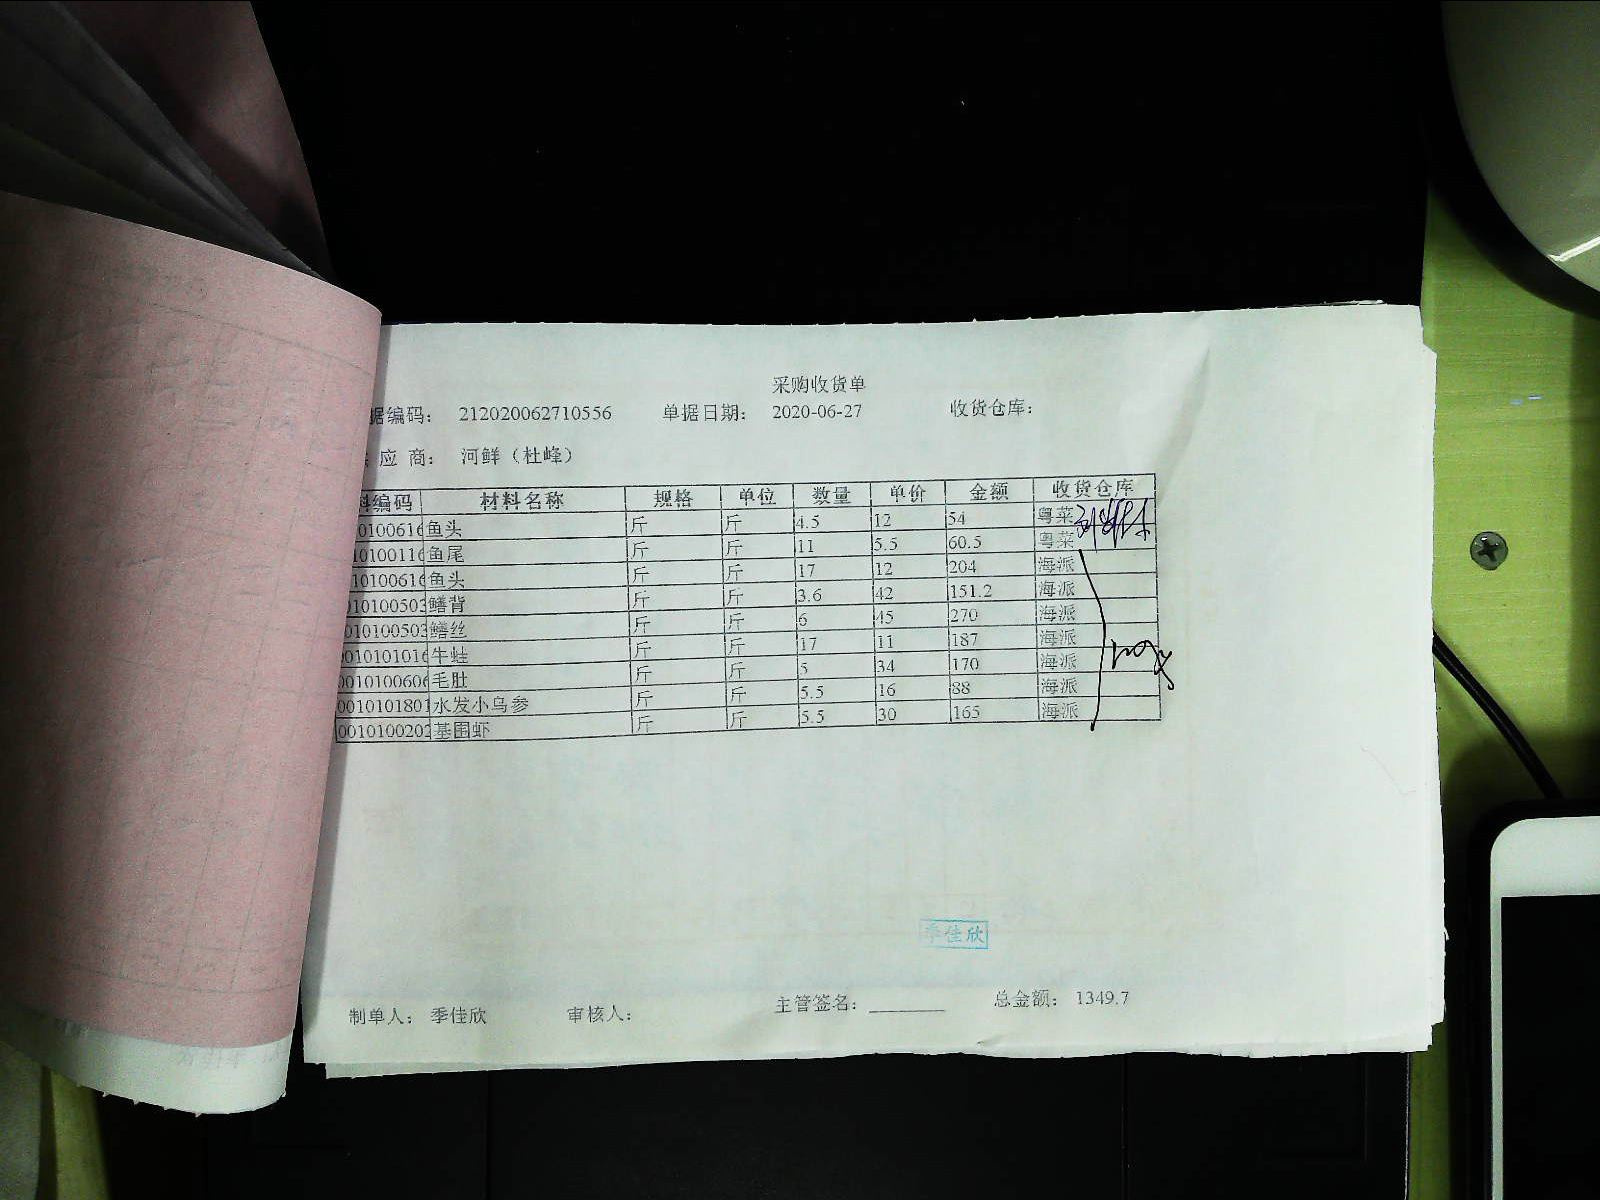 采购收货单
据编码： 212020062710556 单据日期： 2020-06-27 收货仓库：
应 商： 河鲜（杜峰）
料编码 材料名称 规格 单位 数量 单价 金额 收货仓库
010100616 鱼头 斤 斤 4.5 12 54 粤菜
010100116 鱼尾 斤 斤 11 5.5 60.5 粤菜
010100616 鱼头 斤 斤 17 12 204 海派
010100503 鳝背 斤 斤 3.6 42 151.2 海派
010100503 鳝丝 斤 斤 6 45 270 海派
0010101016 牛蛙 斤 斤 17 11 187 海派
0010100606 毛肚 斤 斤 5 34 170 海派
0010101801 水发小乌参 斤 斤 5.5 16 88 海派
0010100202 基围虾 斤 斤 5.5 30 165 海派
季佳欣
制单人： 季佳欣 审核人： 主管签名： 总金额： 1349.7